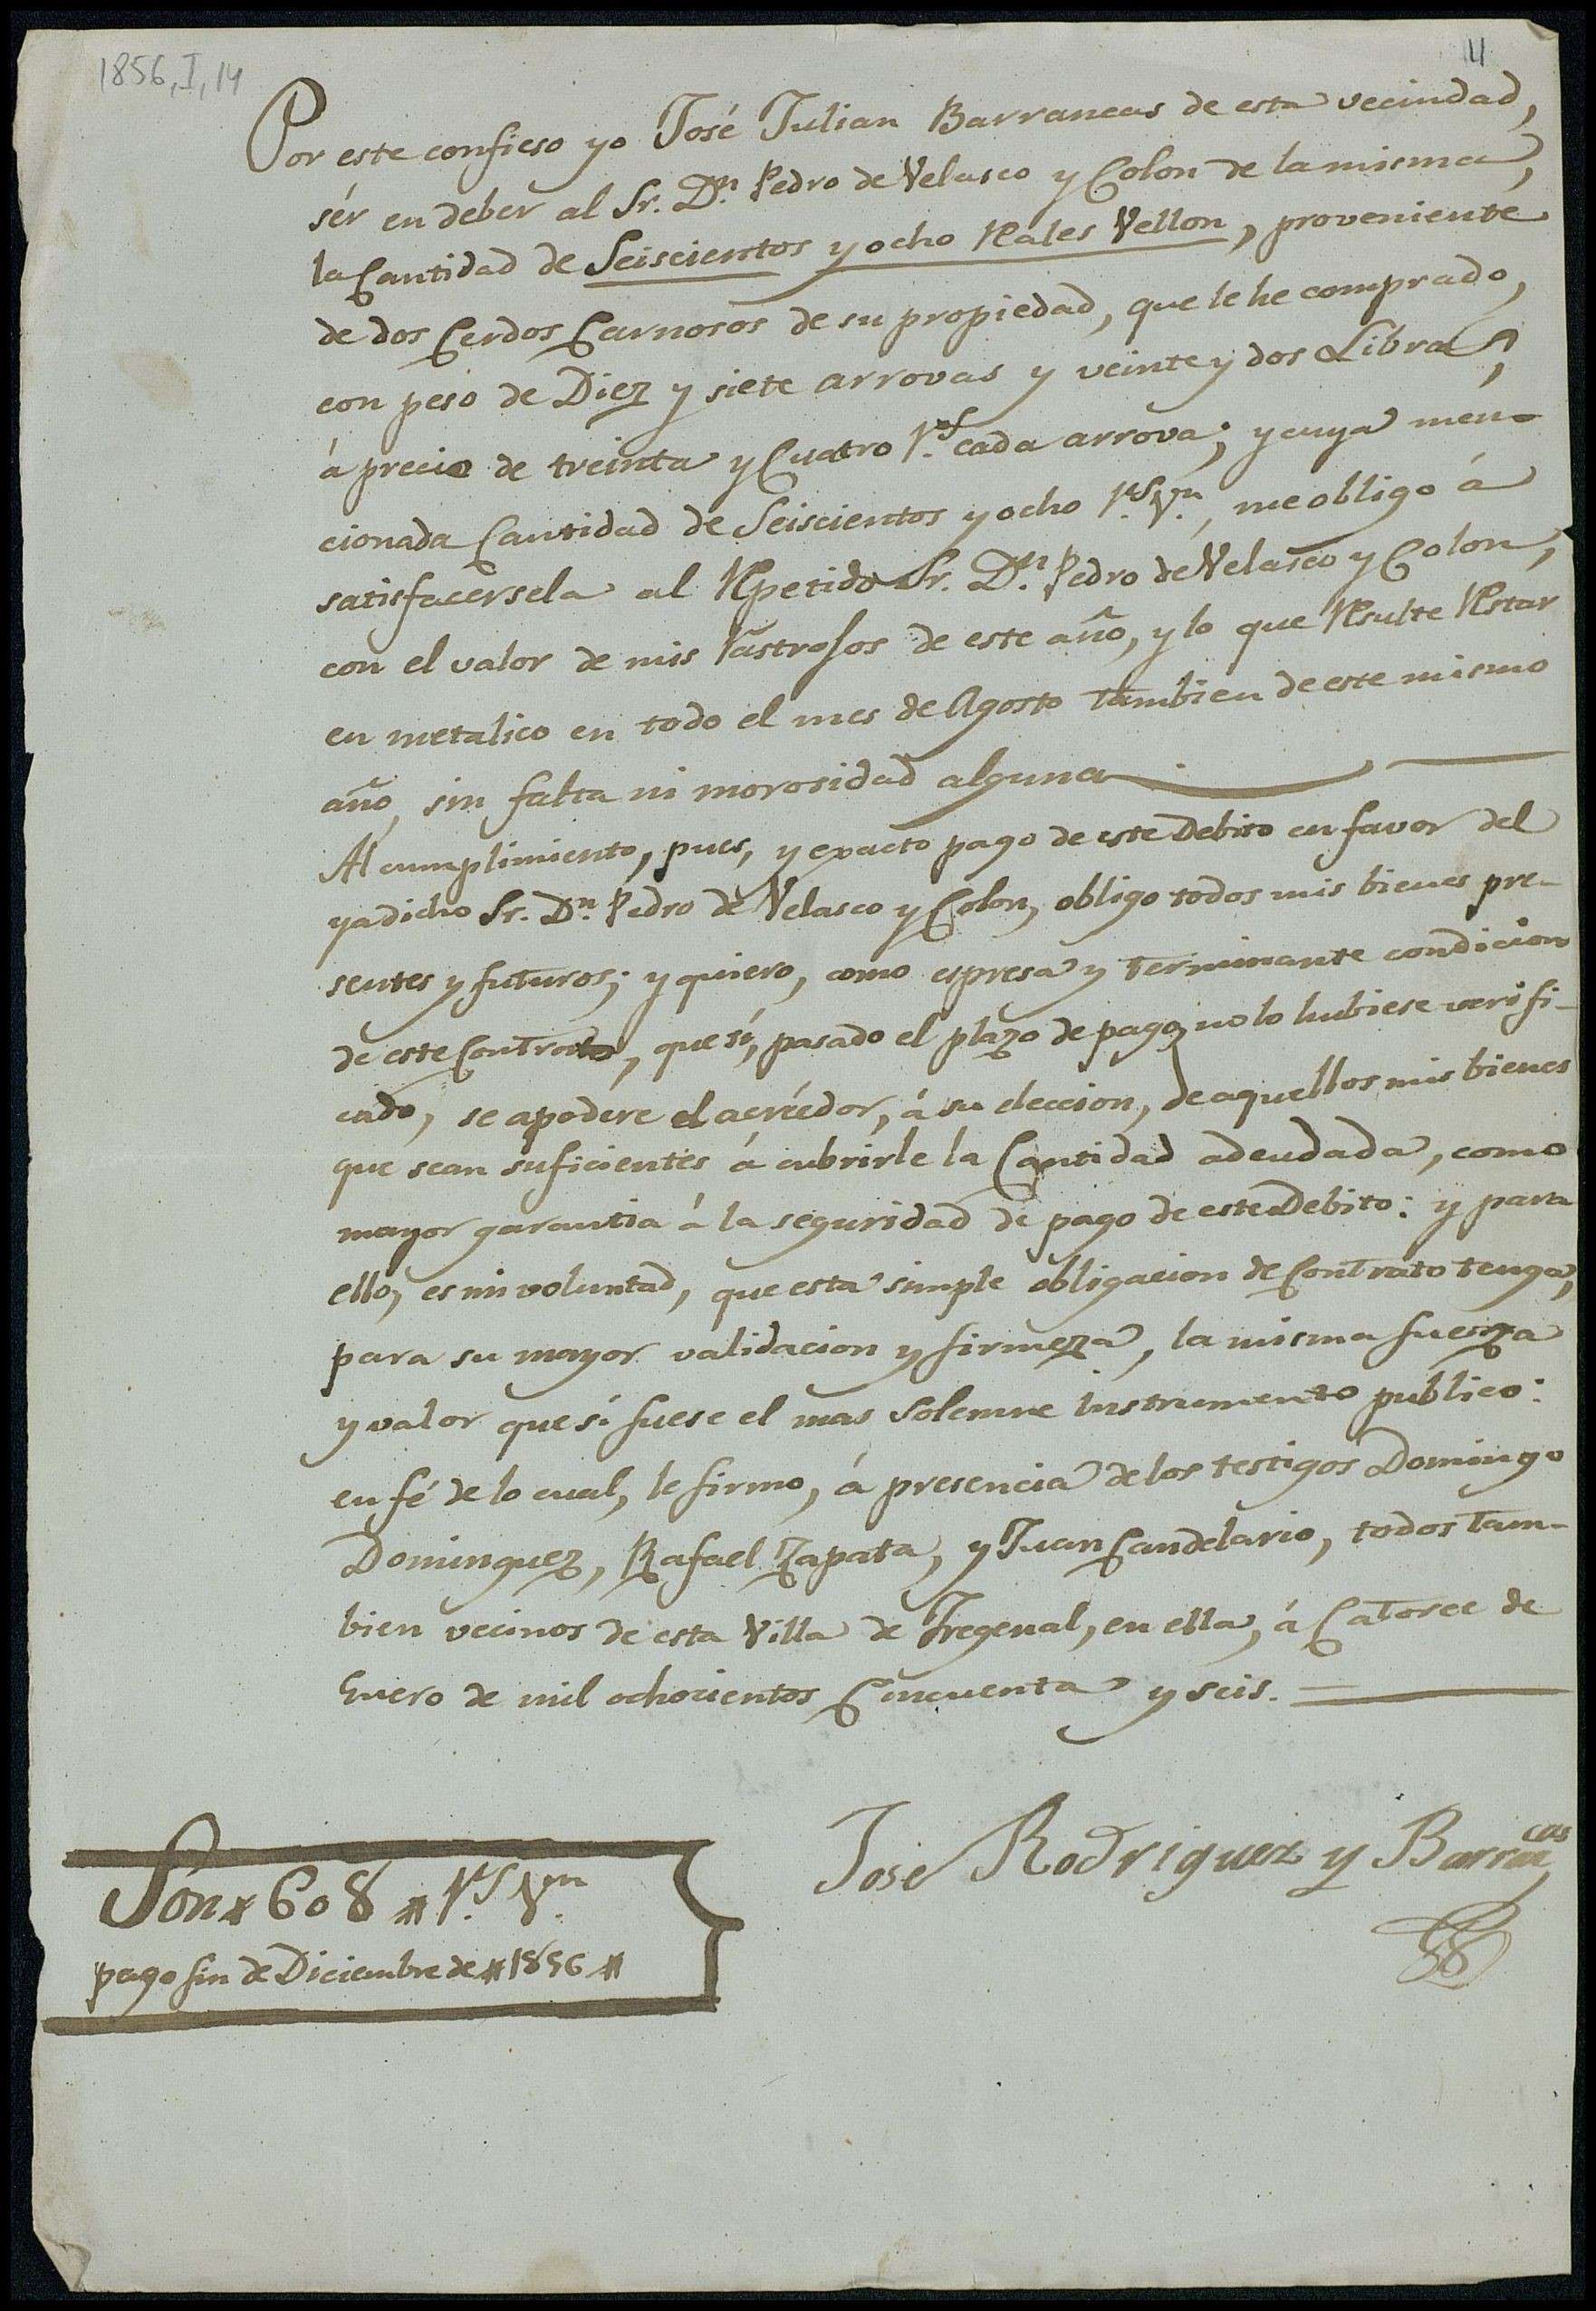 1856, I, 14
11
Por este confieso yo José Julian Barrancas de esta vecindad,
sér en deber al Sr. Dn. Pedro de Velasco y Colon de la misma,
la Cantidad de Seiscientos y ocho Reales Vellon, proveniente
de dos Cerdos Carnosos de su propiedad, que le he comprado,
con peso de Diez y siete arrovas y veinte y dos Libras,
á precio de treinta y Cuatro rs. cada arrova; y cuya men-
cionada Cantidad de Seiscientos y ocho rs. vn., me obligo á
satisfacersela al Repetido Sr. Dn. Pedro de Velasco y Colon,
con el valor de mis rastrojos de este año, y lo que Resulte Restar
en metalico en todo el mes de Agosto tambien de este mismo
año, sin falta ni morosidad alguna
Al cumplimiento, pues, y exacto pago de este Debito en favor del
ya dicho Sr. Dn. Pedro de Velasco y Colon, obligo todos mis bienes pre-
sentes y futuros; y quiero, como espresa y terminante condicion
de este Contrato, que sí, pasado el plazo de pago, no lo hubiese verifi-
cado, se apodere el acréedor, á su eleccion, de aquellos mis bienes
que sean suficientes á cubrirle la Cantidad adeudada, como
mayor garantia á la seguridad de pago de este Debito: y para
ello, es mi voluntad, que esta simple obligacion de Contrato tenga,
para su mayor validacion y firmeza, la misma fuerza
y valor que sí fuese el mas Solemne instrumento publico:
en fé de lo cual, le firmo, á presencia de los testigos Domingo
Dominguez, Rafael Zapata, y Juan Candelario, todos tam-
bien vecinos de esta Villa de Fregenal, en ella, á Catorce de
Enero de mil ochocientos Cincuenta y seis. =
Jose Rodriguez y Barrancas
Son # 608 # rs. vn.
pago fin de Diciembre de # 1856 #